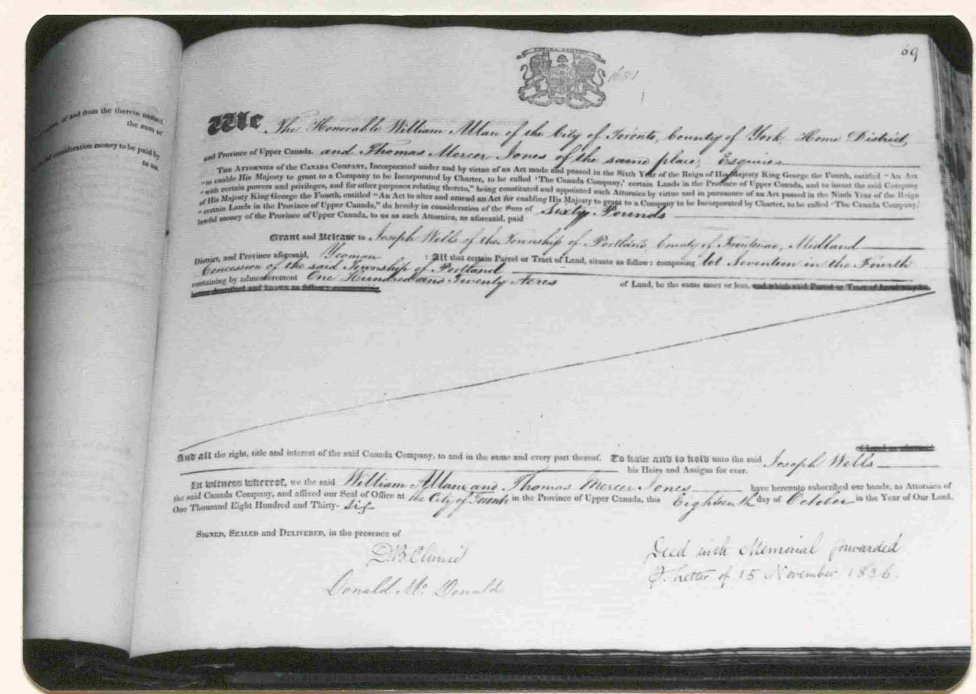 69
of and from the therein named
the sum of
consideration money to be paid by
to us
We, The Honorable William Allan of the City of Toronto, County of York, Home District,
and Province of Upper Canada and Thomas Mercer Jones of the same place, Esquires
THE ATTORNIES of the CANADA COMPANY, Incorporated under and by virtue of an Act made and passed in the Sixth Year of the Reign of His Majesty King George the Fourth, entitled "An Act
"to enable His Majesty to grant to a Company to be Incorporated by Charter, to be called 'The Canada Company,' certain Lands in the Province of Upper Canada, and to invest the said Company
"with certain powers and privileges, and for other purposes relating thereto," being constituted and appointed such Attornies by virtue and in pursuance of an Act passed in the Ninth Year of the Reign
of His Majesty King George the Fourth, entitled "An Act to alter and amend an Act for enabling His Majesty to grant to a Company to be Incorporated by Charter, to be called 'The Canada Company,'
"certain Lands in the Province of Upper Canada," do hereby in consideration of the Sum of Sixty Pounds
lawful money of the Province of Upper Canada, to us as such Attornies, as aforesaid, paid
Grant and Release to Joseph Wells of the Township of Portland, County of Frontenac, Midland
District, and Province aforesaid, Yeoman : All that certain Parcel or Tract of Land, situate as follow: composing Lot Seventeen in the Fourth
Concession of the said Township of Portland
containing by admeasurement One Hundred and Twenty Acres of Land, be the same more or less, and which said Parcel or Tract of Land may be
better described and known as follow:
And all the right, title and interest of the said Canada Company, to and in the same and every part thereof. To have and to hold unto the said Joseph Wells
his Heirs and Assigns for ever.
In witness whereof, we the said William Allan and Thomas Mercer Jones have hereunto subscribed our hands, as Attornies of
the said Canada Company, and affixed our Seal of Office at the City of Toronto in the Province of Upper Canada, this Eighteenth day of October in the Year of Our Lord,
One Thousand Eight Hundred and Thirty-Six
SIGNED, SEALED and DELIVERED, in the presence of
Donald Mc Donald
Deed with Memorial forwarded
Letter of 15 November 1836.